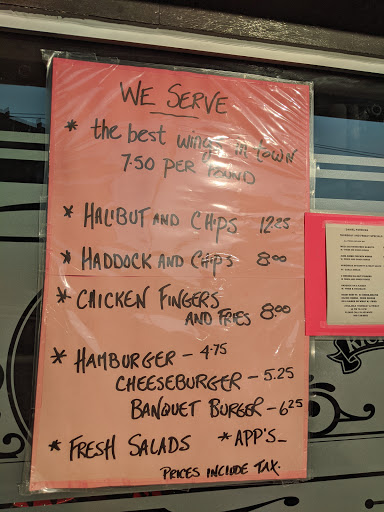 WE SERVE
* the best wings in town
7.50 PER POUND
* HALIBUT AND CHIPS 12.25
* HADDOCK AND CHIPS 8.00
* CHICKEN FINGERS
AND FRIES 8.00
* HAMBURGER - 4.75
CHEESEBURGER - 5.25
BANQUET BURGER - 6.25
* FRESH SALADS * APP'S_
PRICES INCLUDE TAX.